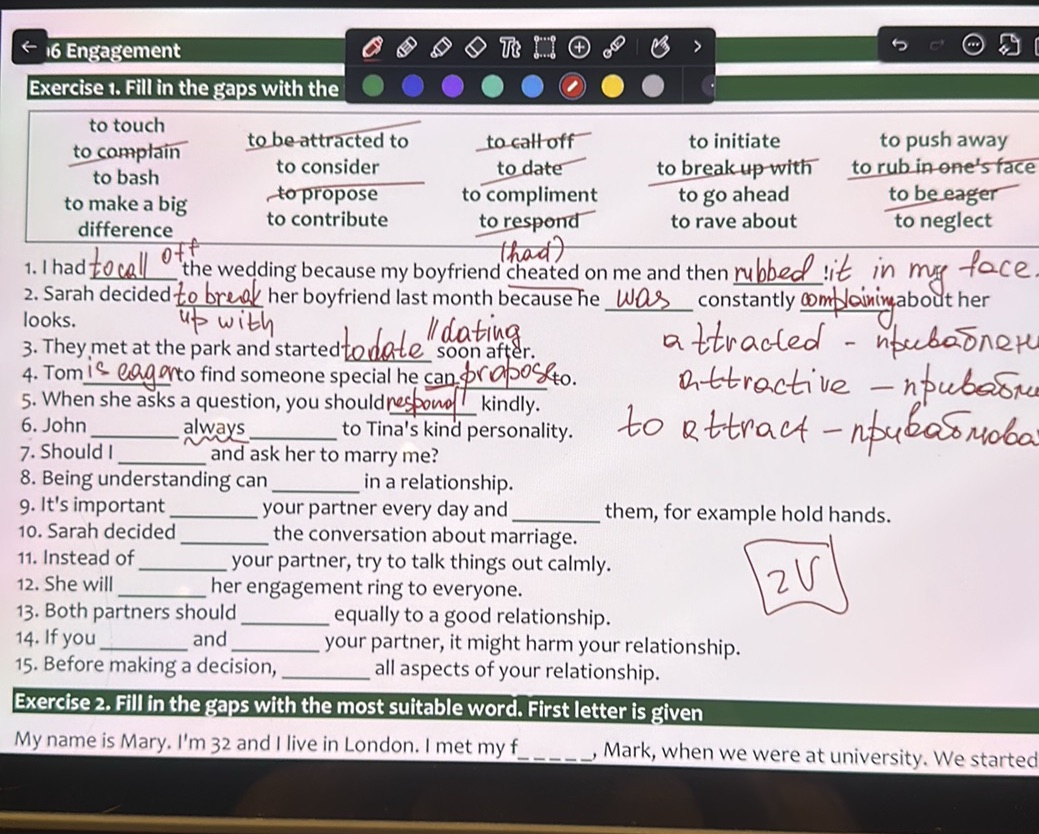 06 Engagement
Tt
Exercise 1. Fill in the gaps with the
to touch
to complain
to bash
to make a big
difference
to be attracted to
to consider
to propose
to contribute
to call off
to date
to compliment
to respond
to initiate
to break up with
to go ahead
to rave about
to push away
to rub in one's face
to be eager
to neglect
off (had)
1. I had to call the wedding because my boyfriend cheated on me and then rubbed it in my face.
2. Sarah decided to break her boyfriend last month because he was constantly complaining about her
looks. up with
// dating
3. They met at the park and started to date soon after.
attracted -
4. Tom is eager to find someone special he can propose to.
attractive -
5. When she asks a question, you should respond kindly.
6. John ________ always ________ to Tina's kind personality.
to attract -
7. Should I ________ and ask her to marry me?
8. Being understanding can ________ in a relationship.
9. It's important ________ your partner every day and ________ them, for example hold hands.
10. Sarah decided ________ the conversation about marriage.
2V
11. Instead of ________ your partner, try to talk things out calmly.
12. She will ________ her engagement ring to everyone.
13. Both partners should ________ equally to a good relationship.
14. If you ________ and ________ your partner, it might harm your relationship.
15. Before making a decision, ________ all aspects of your relationship.
Exercise 2. Fill in the gaps with the most suitable word. First letter is given
My name is Mary. I'm 32 and I live in London. I met my f_ _ _ _ _, Mark, when we were at university. We started